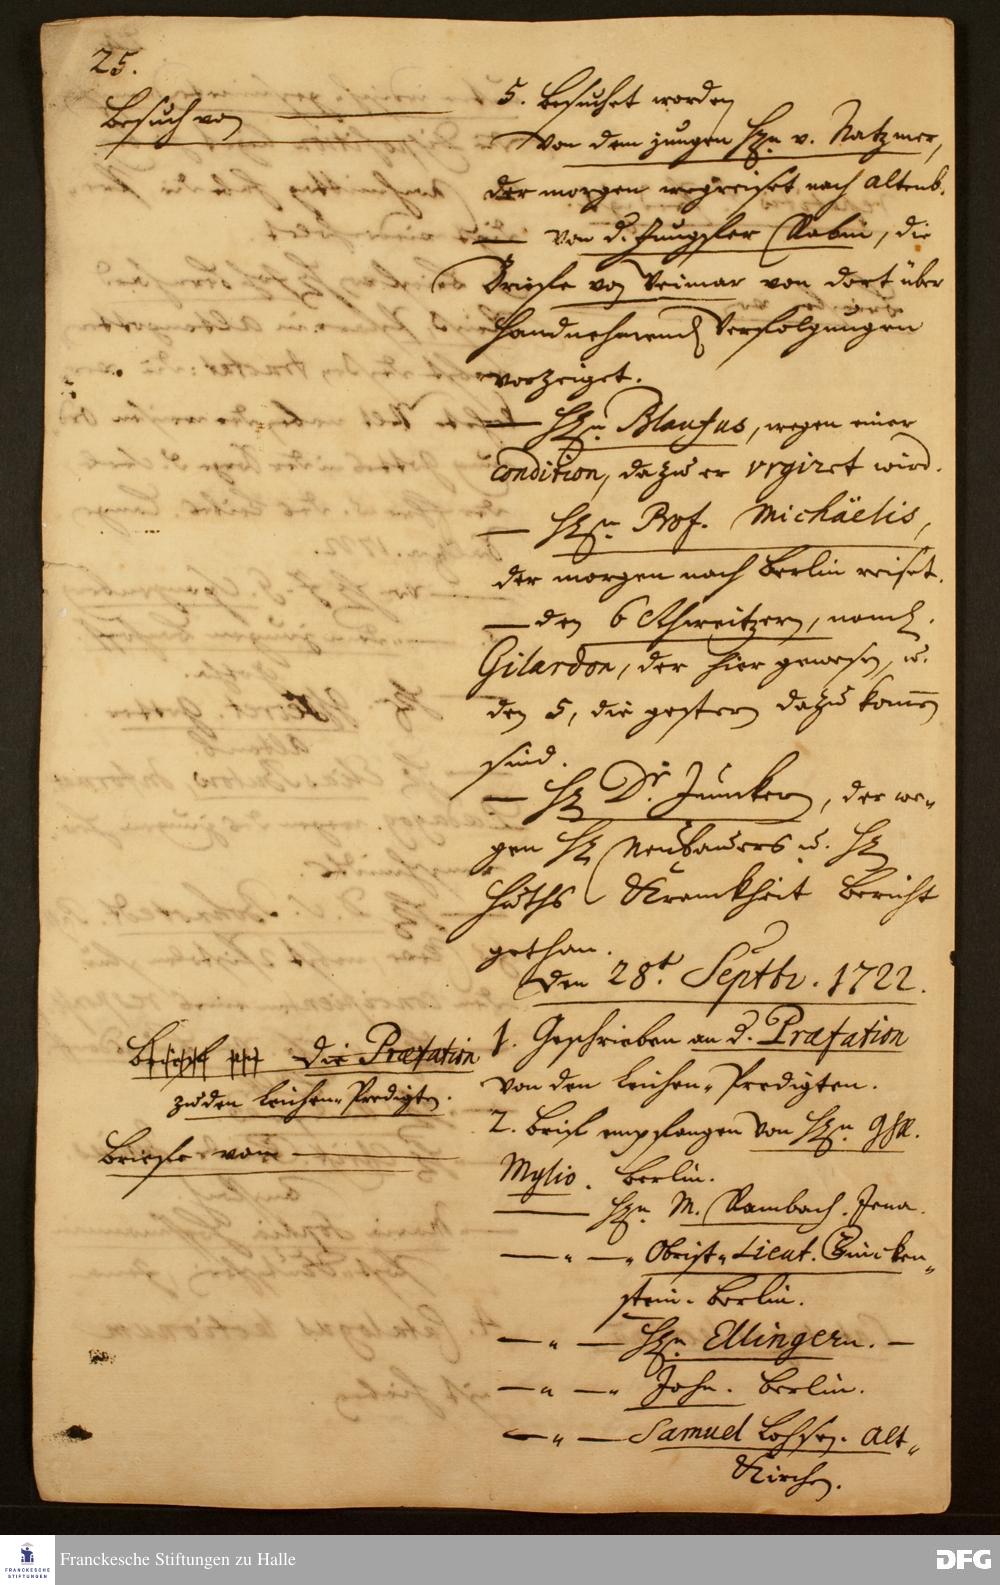 25.
Besuch von
5. Besuchet worden
von dem jungen Hrn v. Natzmer,
der morgen wegreiset nach Altenb.
— von d. Jungfer Rabin, die
Briefe von Weimar von dort über
handnehmend Verfolgungen
vorzeiget.
— Hrn Blaufus, wegen einer
condition, dazu er vrgiret wird.
— Hrn Prof. Michäelis,
der morgen nach Berlin reiset.
— den 6 Schweitzern, naml.
Gilardon, der hier gewesen, u.
den 5, die gestern dazu komen
sind.
— H Dr. Junckern, der we-
gen H Neubauers u. H
Huths Kranckheit Bericht
gethan.
Den 28t. Septbr. 1722.
Die Præfation
zu den Leichen-Predigten.
1. Geschrieben an d. Præfation
von den Leichen-Predigten.
2. Brief empfangen von Hrn GhR.
Briefe vom
Mylio. Berlin.
— Hrn M. Rambach. Jena.
— " — " Obrist-Lieut.
stein. Berlin.
— " — Hrn Ellingern. —
— " — " John. Berlin.
— " — Samuel Lohsen. Alt-
Kirchen.
Franckesche Stiftungen zu Halle
FRANCKESCHE
STIFTUNGEN
DFG